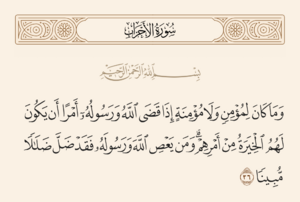 سُورَةُ الأَحْزَابِ
بِسْمِ اللَّهِ الرَّحْمَٰنِ الرَّحِيمِ
وَمَا كَانَ لِمُؤْمِنٍ وَلَا مُؤْمِنَةٍ إِذَا قَضَى اللَّهُ وَرَسُولُهُۥٓ أَمْرًا أَن يَكُونَ
لَهُمُ الْخِيَرَةُ مِنْ أَمْرِهِمْ ۗ وَمَن يَعْصِ اللَّهَ وَرَسُولَهُۥ فَقَدْ ضَلَّ ضَلَٰلًا
مُّبِينًا ٣٦